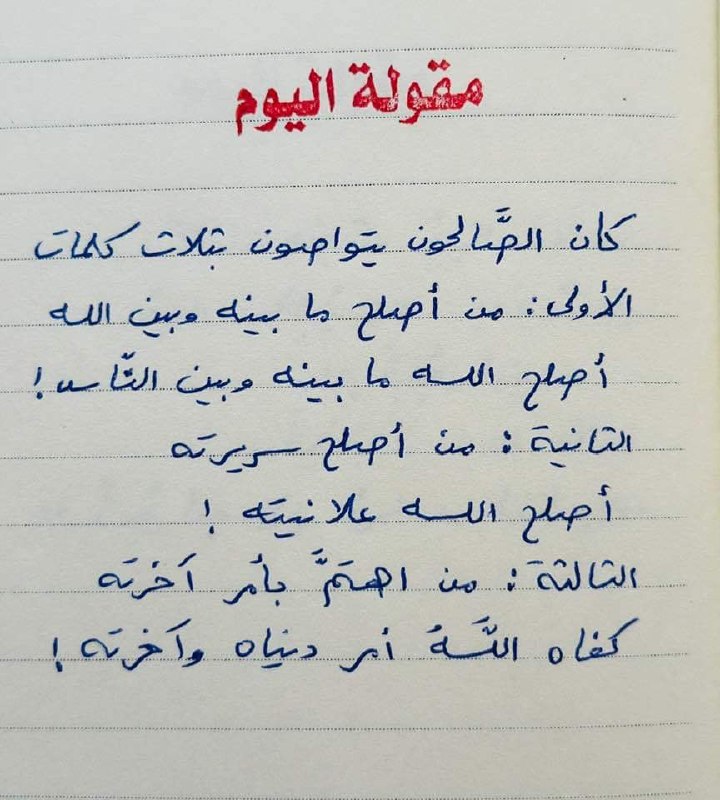 مقولة اليوم
كان الصَّالحون يتواصون بثلاث كلمات
الأولى: من أصلح ما بينه وبين الله
أصلح الله ما بينه وبين النَّاس!
الثانية: من أصلح سريرته
أصلح الله علانيته!
الثالثة: من اهتمَّ بأمر آخرته
كفاه اللَّهُ أمر دنياه وآخرته!